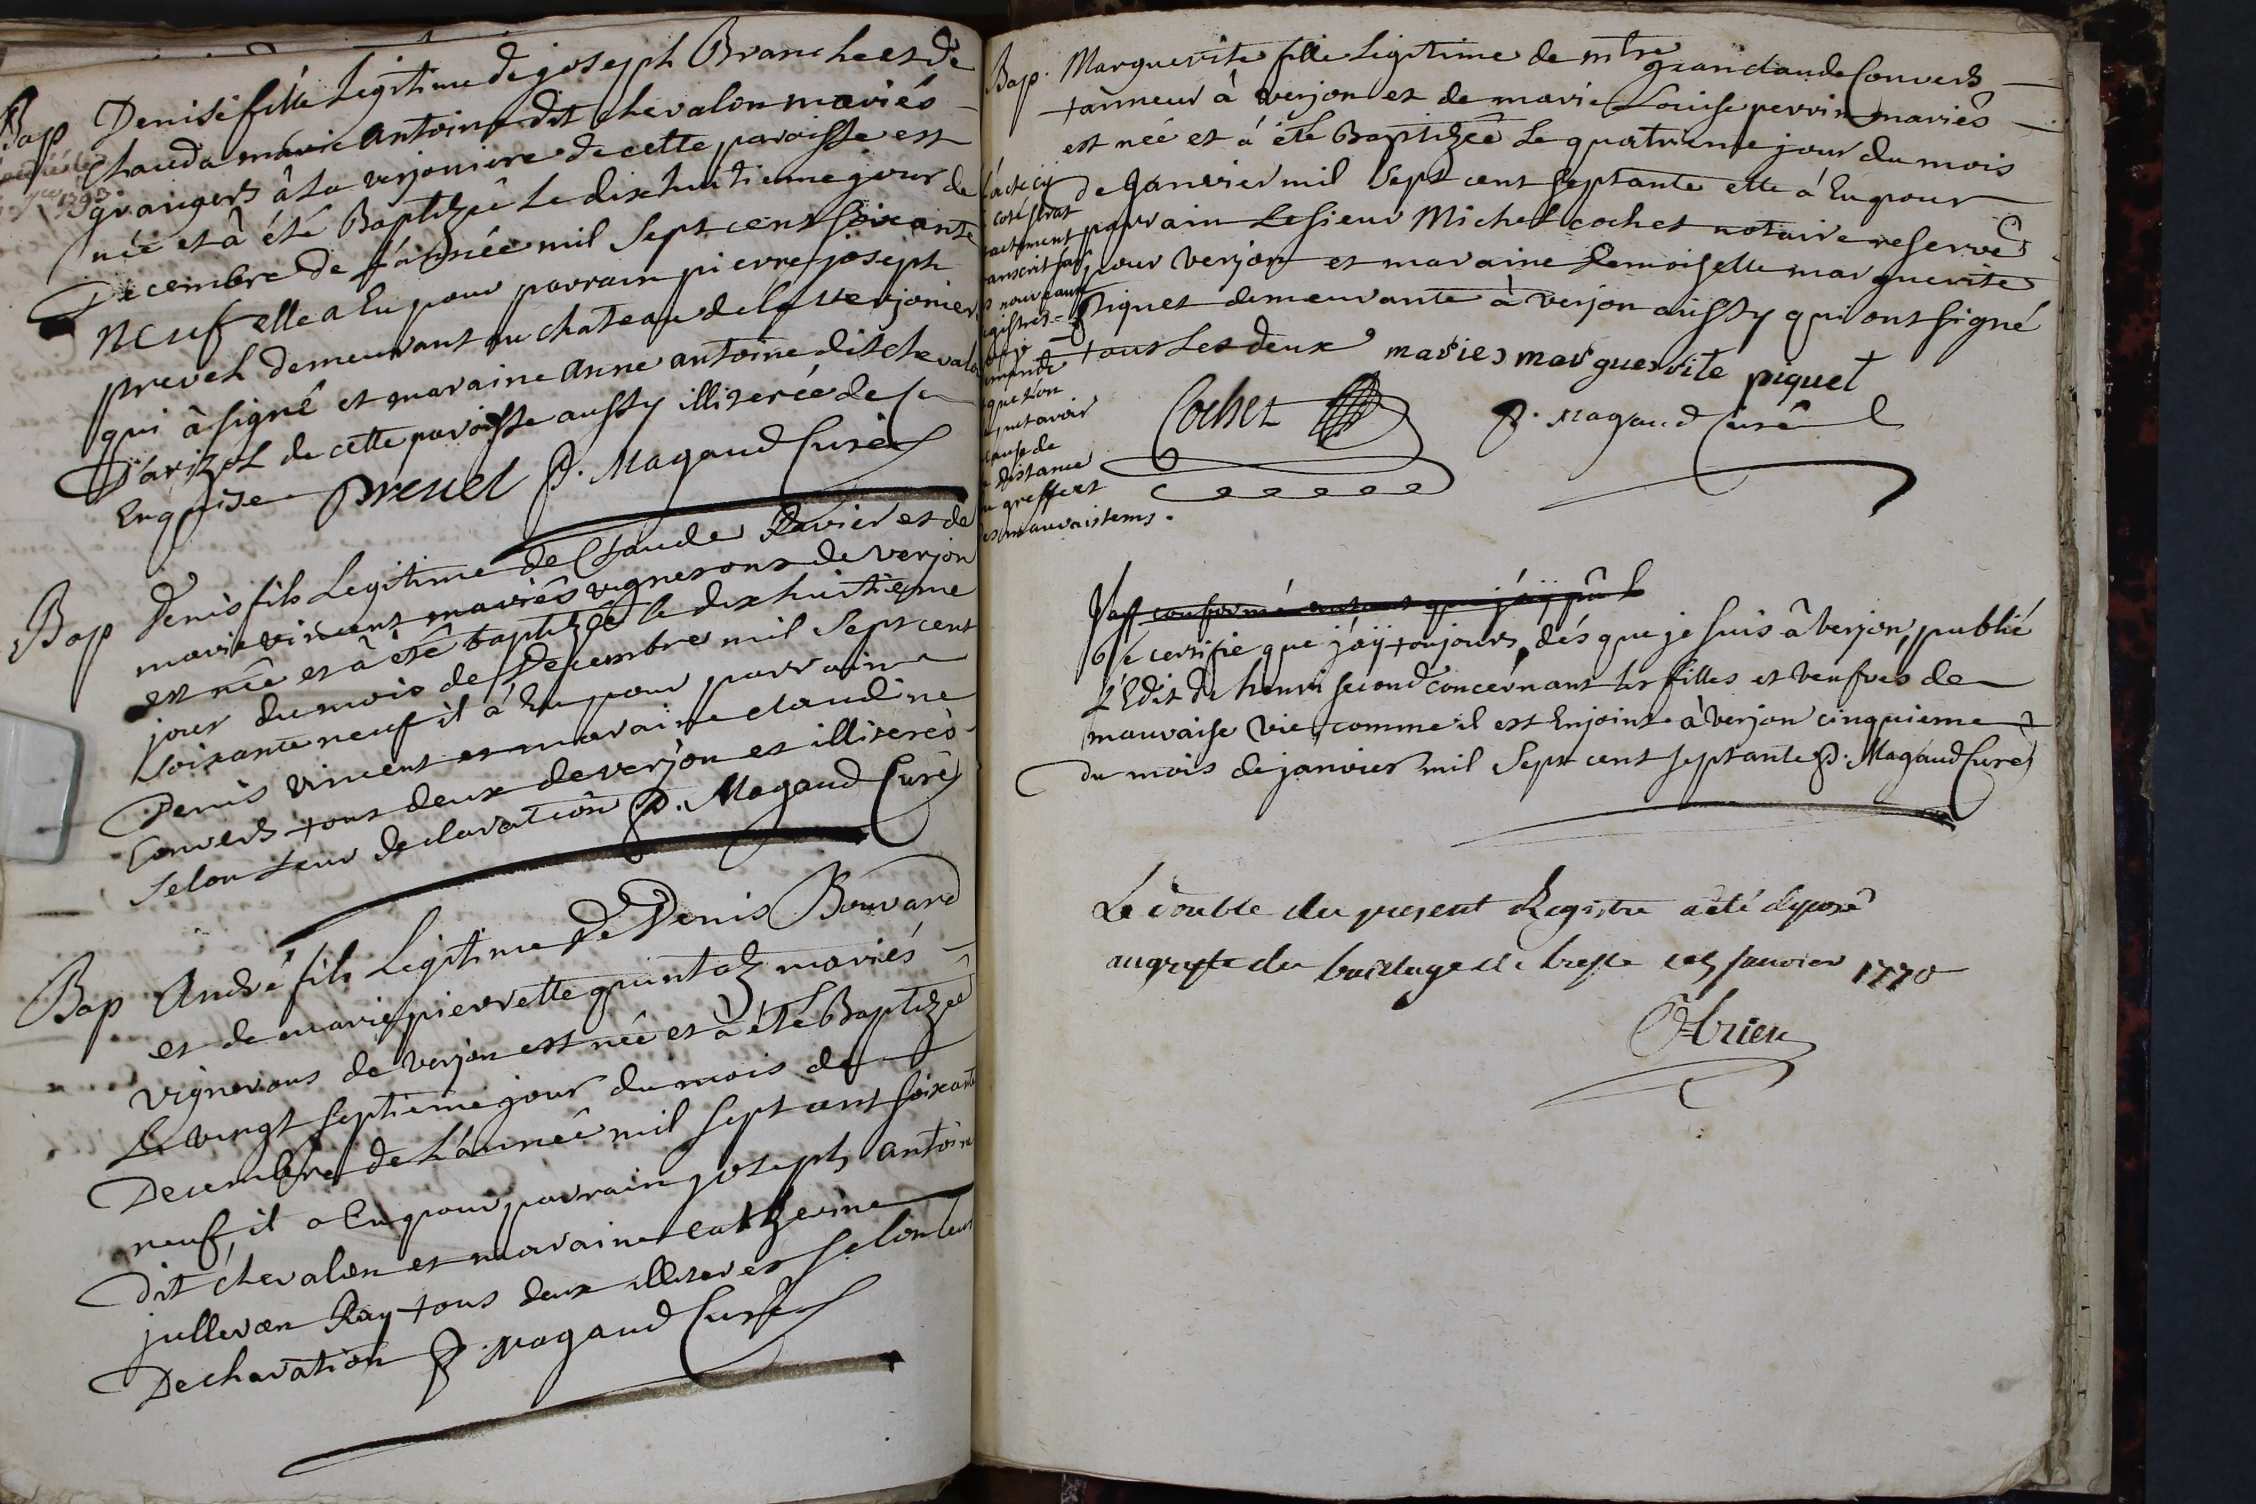 Bap Denise fille Legitime de joseph Branche et de
Clauda marie antoine dit chevalon mariés
grangers â la verjoniere de cette paroisse est
née et â été Baptizée le dixhuitieme jour de
Decembre de l'année mil sept cent soixante
neuf elle a Eu pour parrain pierre joseph
prevel demeurant au chateau de la verjoniere
qui à signé et maraine anne antoine dit chevalon
de cette paroisse aussy illiterée de ce
Enquise Prevel P. Magaud Curé
Bap Denis fils Legitime de Claude Ravier et de
marie vincent mariés vignerons de verjon
est né et à été baptizé le dixhuitieme
jour du mois de Decembre mil sept cent
soixante neuf il â Eu pour parrain
Denis vincent et maraine claudine
Convers tous deux de verjon et illiterés
selon Leur declaration P. Magaud Curé
Bap André fils Legitime de Denis Bouvard
et de marie pierrette quintaz mariés
vignerons de verjon est né et à été Baptizé
Le vingt septieme jour du mois de
Decembre de L'année mil sept cent soixante
neuf il a Eu pour parrain joseph antoine
dit chevalon et maraine catherine
julleron Ray tous deux illiteres selon leur
Declaration P. Magaud Curé
Bap. Marguerite fille Legitime de mtre jean claude Convers
tanneur â verjon et de marie Louise perrin mariés
est née et à été Baptizée le quatrieme jour du mois
de janvier mil sept cent septante elle â Eu pour
parrain Le sieur Michel cochet notaire reservé
pour verjon et maraine Demoiselle marguerite
piquet demeurante à verjon aussy qui ont signé
tous Les deux maries marguerite piquet
Cochet P. Magaud Curé
l'acte cy
coté serat
nouveaux
que l'on
avoir
cause de
distance
greffe et
mauvais tems.
conformé autant que j'aÿ pû
Je certifie que j'aÿ toujours, dés que je suis â verjon, publié
L'Edit de henri second concernant les filles et veufves de
mauvaise vie, comme il est Enjoint â verjon cinquieme
du mois de janvier mil sept cent septante P. Magaud Curé
Le double du present Registre a été deposé
au greffe du bailliage de bresse janvier 1770